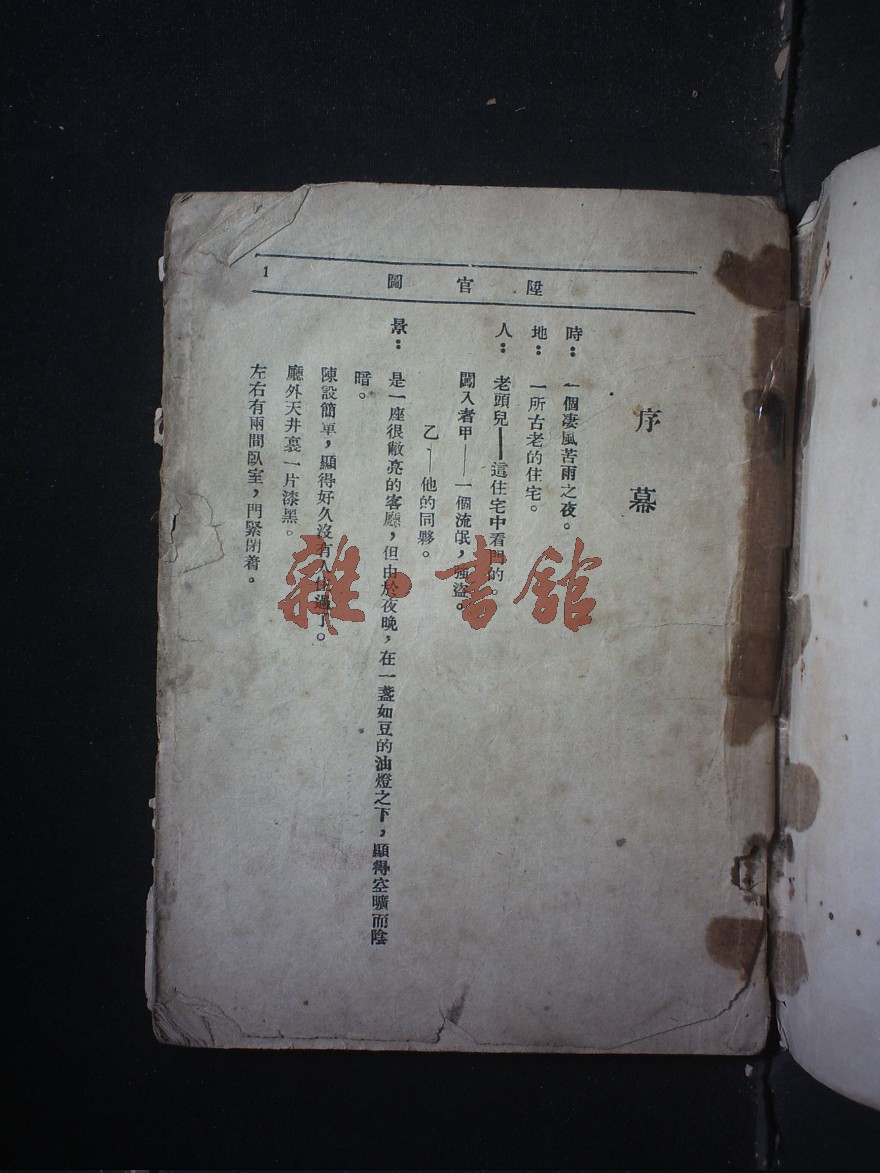 陞官圖
1
序幕
時：一個凄風苦雨之夜。
地：一所古老的住宅。
人：老頭兒——這住宅中看門的。
闖入者甲——一個流氓，強盜。
乙——他的同夥。
景：是一座很敞亮的客廳，但由於夜晚，在一盞如豆的油燈之下，顯得空曠而陰
暗。
陳設簡單，顯得好久沒有人住過了。
廳外天井裏一片漆黑。
左右有兩間臥室，門緊閉着。
雜·書館